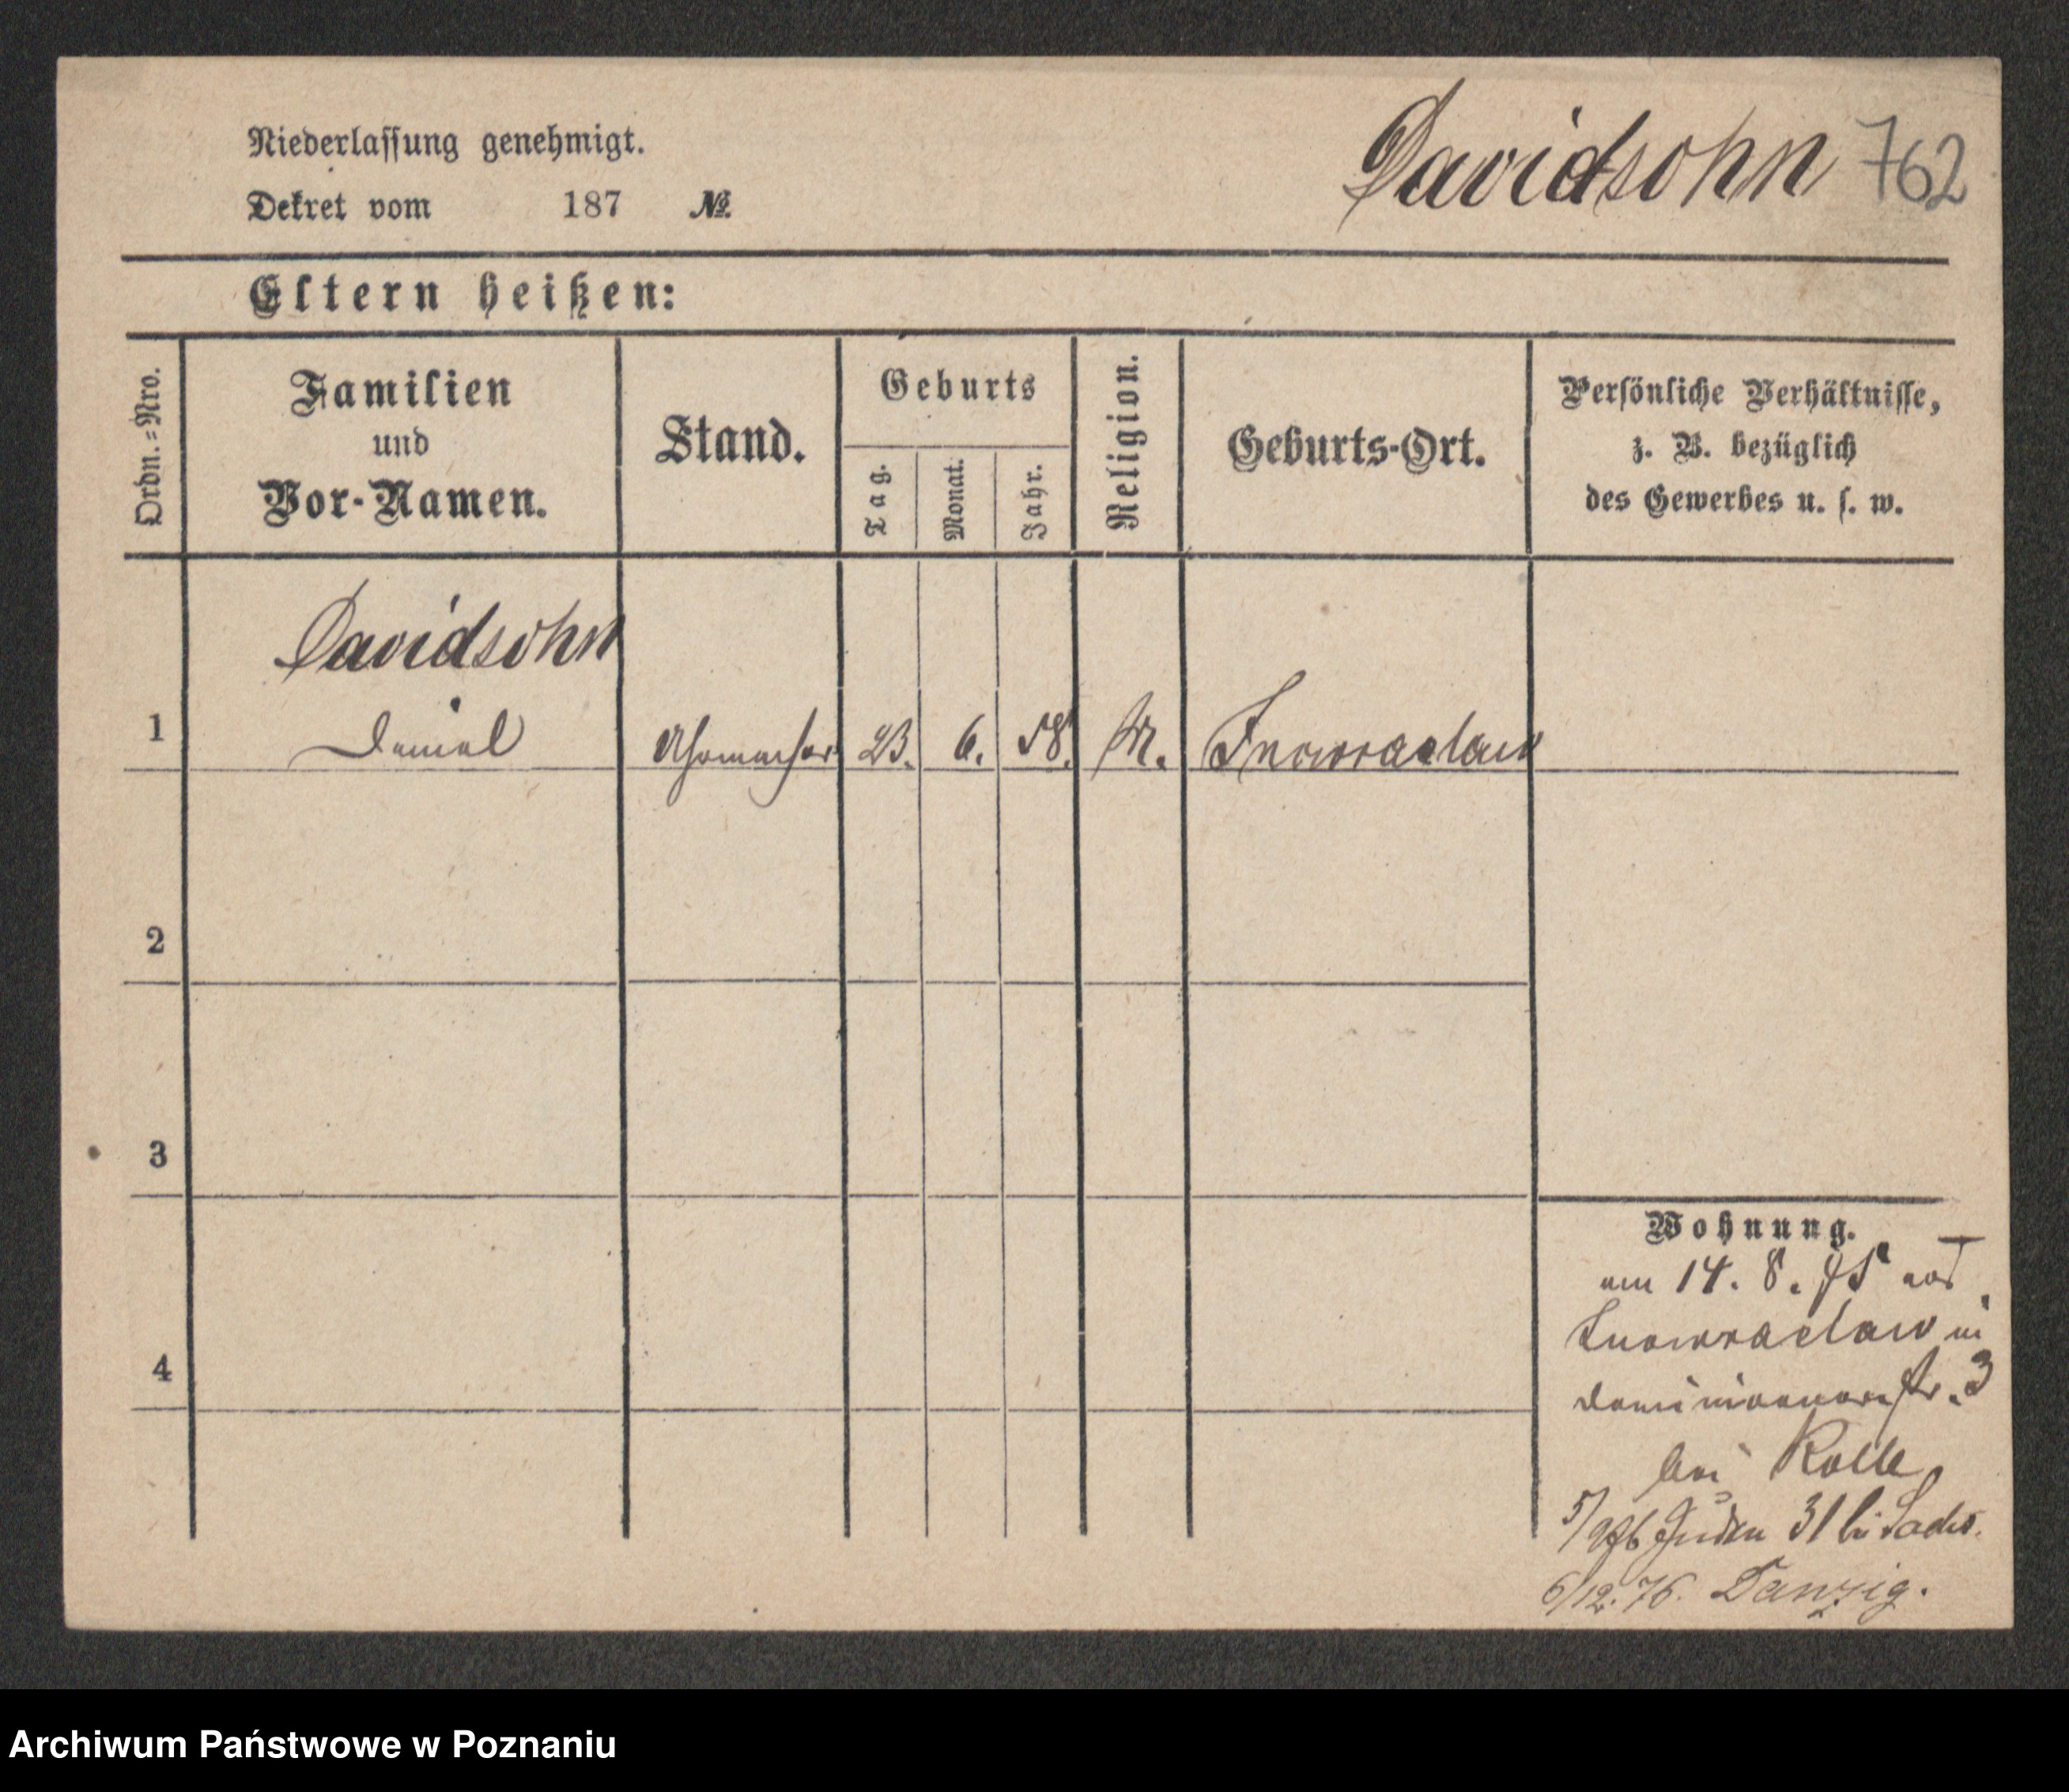 Niederlassung genehmigt.
Dekret vom 187 №
Davidsohn 762
Eltern heißen:
Ordn.-Nro.
Familien
und
Vor-Namen.
Stand.
Geburts
Tag.
Monat.
Jahr.
Religion.
Geburts-Ort.
Persönliche Verhältnisse,
z. B. bezüglich
des Gewerbes u. s. w.
Davidsohn
1 Daniel Uhrmacher 23. 6. 58. M. Inowraclaw
2
3
4
Wohnung.
am 14. 8. 75 aus
Inowraclaw in
Dominicanerstr. 3
bei Kolle
Juden 31 bei Sachs.
6/12. 76. Danzig.
Archiwum Państwowe w Poznaniu